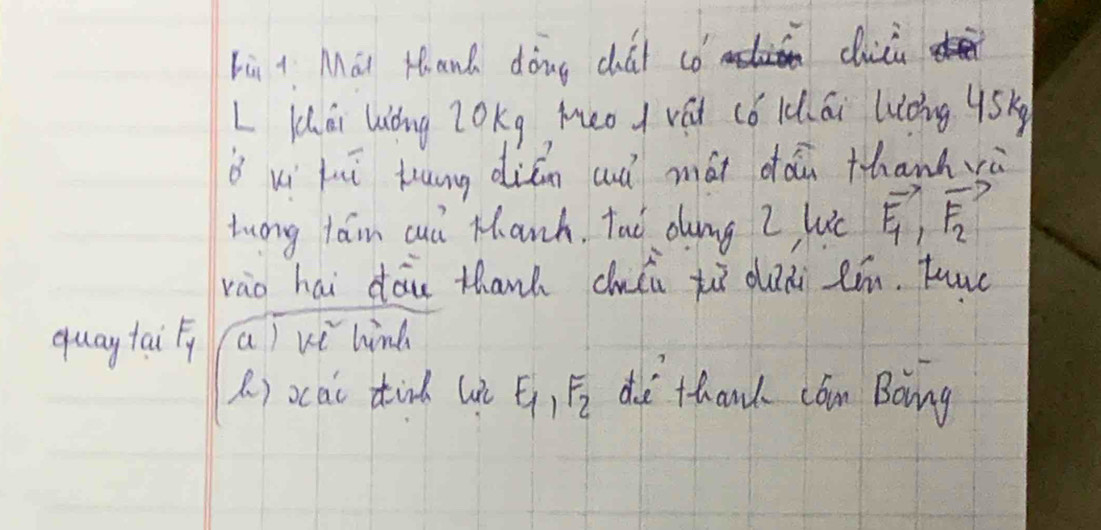 Bài 1: Một thanh đồng chất có chiều dài
L khối lượng 20kg treo 1 vật có khối lượng 45kg
ở vị trí trung điểm của một đầu thanh và
trọng tâm của thanh. Tác dụng 2 lực F₁, F₂
vào hai đầu thanh chiều từ dưới lên. trục
quay tại F₁
a) vẽ hình
b) xác định lực F₁, F₂ để thanh cân Bằng